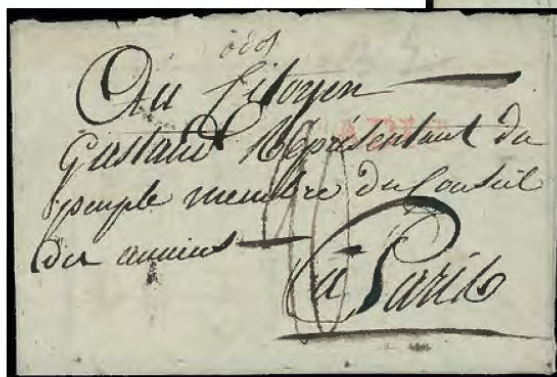 Au Citoyen
Représentant du
peuple membre du Conseil
des anciens
à Paris